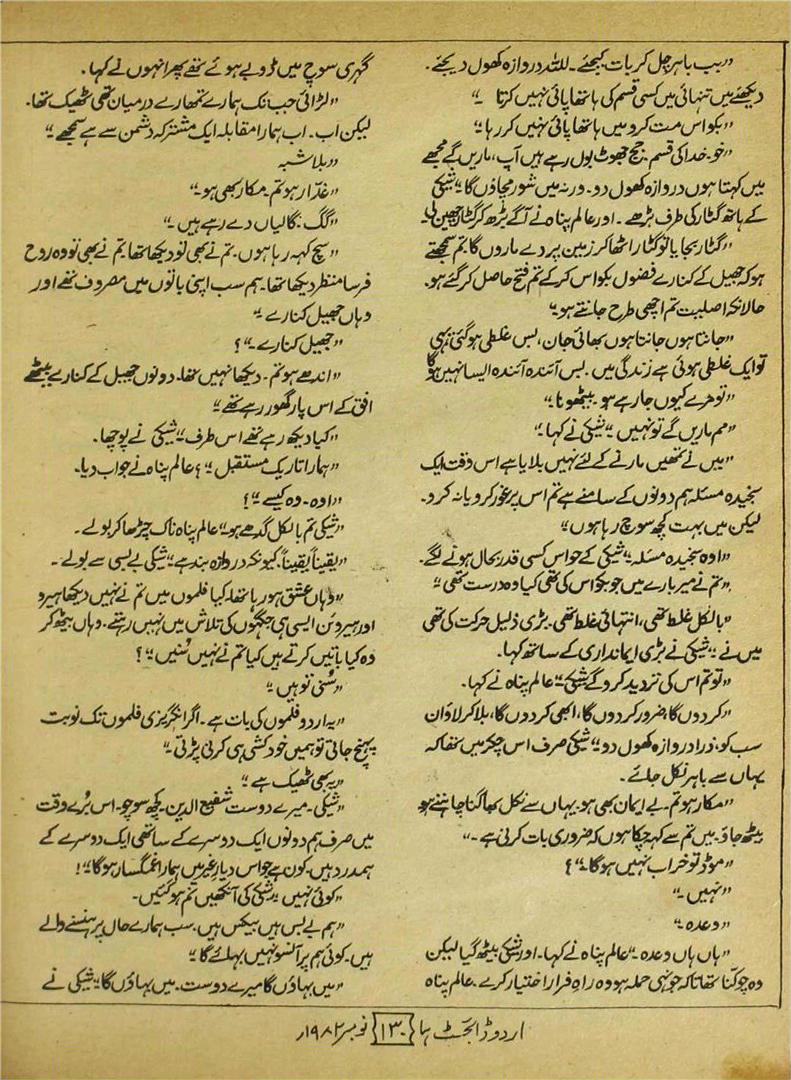 ”بب باہر چل کر بات کیجئے۔ للّٰلہ دروازہ کھول دیجئے۔
دیکھئے میں تنہائی میں کسی قسم کی ہاتھا پائی نہیں کرتا ۔“
”بکواس مت کرو میں ہاتھا پائی نہیں کر رہا۔“
”خو۔ خدا کی قسم۔ جج جھوٹ بول رہے ہیں آپ، ماریں گے مجھے
میں کہتا ہوں دروازہ کھول دو۔ ورنہ میں شور مچاؤں گا۔“ شیکی
کے ہاتھ گٹار کی طرف بڑھے ۔ اور عالم پناہ نے آگے بڑھ کر گٹار چھین لی۔
”گٹار بجایا تو گٹار اٹھا کر زمین پر دے ماروں گا۔ تم سمجھتے
ہو کہ جھیل کے کنارے فضول بکواس کر کے تم فتح حاصل کر گئے ہو۔
حالانکہ اصلیت تم اچھی طرح جانتے ہو۔“
”جانتا ہوں جانتا ہوں بھائی جان، بس غلطی ہو گئی، یہی
تو ایک غلطی ہوئی ہے زندگی میں۔ بس آئندہ آئندہ ایسا نہیں ہوگا
”تو مرے کیوں جا رہے ہو۔ بیٹھو نا۔“
”مم ماریں گے تو نہیں۔“ شیکی نے کہا۔“
”میں نے تمھیں مارنے کے لئے نہیں بلایا ہے اس وقت ایک
سنجیدہ مسئلہ ہم دونوں کے سامنے ہے تم اس پر غور کرو یا نہ کرو۔
لیکن میں بہت کچھ سوچ رہا ہوں“
”اوہ سنجیدہ مسئلہ“ شیکی کے حواس کسی قدر بحال ہونے لگے۔
”تم نے میرے بارے میں جو بکواس کی تھی کیا وہ درست تھی“
”بالکل غلط تھی، انتہائی غلط تھی۔ بڑی ذلیل حرکت کی تھی
میں نے“ شیکی نے بڑی ایمانداری کے ساتھ کہا۔
”تو تم اس کی تردید کرو گے شیکی“ عالم پناہ نے کہا۔
”کر دوں گا، ضرور کر دوں گا، ابھی کر دوں گا، بلا کر لاؤ ان
سب کو، ذرا دروازہ کھول دو“ شیکی صرف اس چکر میں تھا کہ
یہاں سے باہر نکل جائے۔
”مکار ہو تم۔ بے ایمان بھی ہو۔ یہاں سے نکل بھاگنا چاہتے ہو
بیٹھ جاؤ۔ میں تم سے کہہ چکا ہوں کہ ضروری بات کرنی ہے۔“
”موڈ تو خراب نہیں ہوگا۔“ ؟
”نہیں۔“
”وعدہ۔“
”ہاں ہاں وعدہ۔“ عالم پناہ نے کہا۔ اور شیکی بیٹھ گیا لیکن
وہ چوکنا تھا تاکہ جونہی حملہ ہو وہ راہِ فرار اختیار کرے۔ عالم پناہ
گہری سوچ میں ڈوبے ہوئے تھے پھر انہوں نے کہا۔
”لڑائی جب تک ہمارے تمھارے درمیان تھی ٹھیک تھا۔
لیکن اب۔ اب ہمارا مقابلہ ایک مشترکہ دشمن سے ہے سمجھے“
”بلا شبہ
”غدّار ہو تم۔ مکار بھی ہو۔“
”گگ۔ گالیاں دے رہے ہیں۔“
”سچ کہہ رہا ہوں۔ تم نے بھی تو دیکھا تھا۔ تم نے بھی تو وہ روح
فرسا منظر دیکھا تھا۔ ہم سب اپنی باتوں میں مصروف تھے اور
وہاں جھیل کنارے“
”جھیل کنارے۔“ ؟
”اندھے ہو تم۔ دیکھا نہیں تھا۔ دونوں جھیل کے کنارے بیٹھے
افق کے اس پار گھور رہے تھے“
”کیا دیکھ رہے تھے اس طرف“ شیکی نے پوچھا۔
”ہمارا تاریک مستقبل“ ؟ عالم پناہ نے جواب دیا۔
”اوہ۔ وہ کیسے۔“ ؟
”شیکی تم بالکل گدھے ہو“ عالم پناہ ناک چڑھا کر بولے۔
”یقیناً یقیناً۔ کیونکہ دروازہ بند ہے“ شیکی بے بسی سے بولے۔
”وہاں عشق ہو رہا تھا۔ کیا فلموں میں تم نے نہیں دیکھا ہیرو
اور ہیروئن ایسی ہی جگہوں کی تلاش میں نہیں رہتے۔ وہاں بیٹھ کر
وہ کیا باتیں کرتے ہیں کیا تم نے نہیں سُنیں“ ؟
”سُنی تو ہیں“
”یہ اردو فلموں کی بات ہے۔ اگر انگریزی فلموں تک نوبت
پہنچ جاتی تو ہمیں خودکشی ہی کرنی پڑتی۔“
”یہ بھی ٹھیک ہے“
”شیکی۔ میرے دوست شفیع الدین۔ کچھ سوچو۔ اس بُرے وقت
میں صرف ہم دونوں ایک دوسرے کے ساتھی ایک دوسرے کے
ہمدرد ہیں۔ کون ہے جو اس دیار غیر میں ہمارا غمگسار ہوگا“ !
”کوئی نہیں“ شیکی کی آنکھیں نم ہو گئیں۔
”ہم بے بس ہیں بیکس ہیں۔ سب ہمارے حال پر ہنسنے والے
ہیں۔ کوئی ہم پر آنسو نہیں بہائے گا“
”میں بہاؤں گا میرے دوست۔ میں بہاؤں گا“ شیکی نے
اردو ڈائجسٹ ہما ۱۳۰ نومبر ۱۹۸۲ء